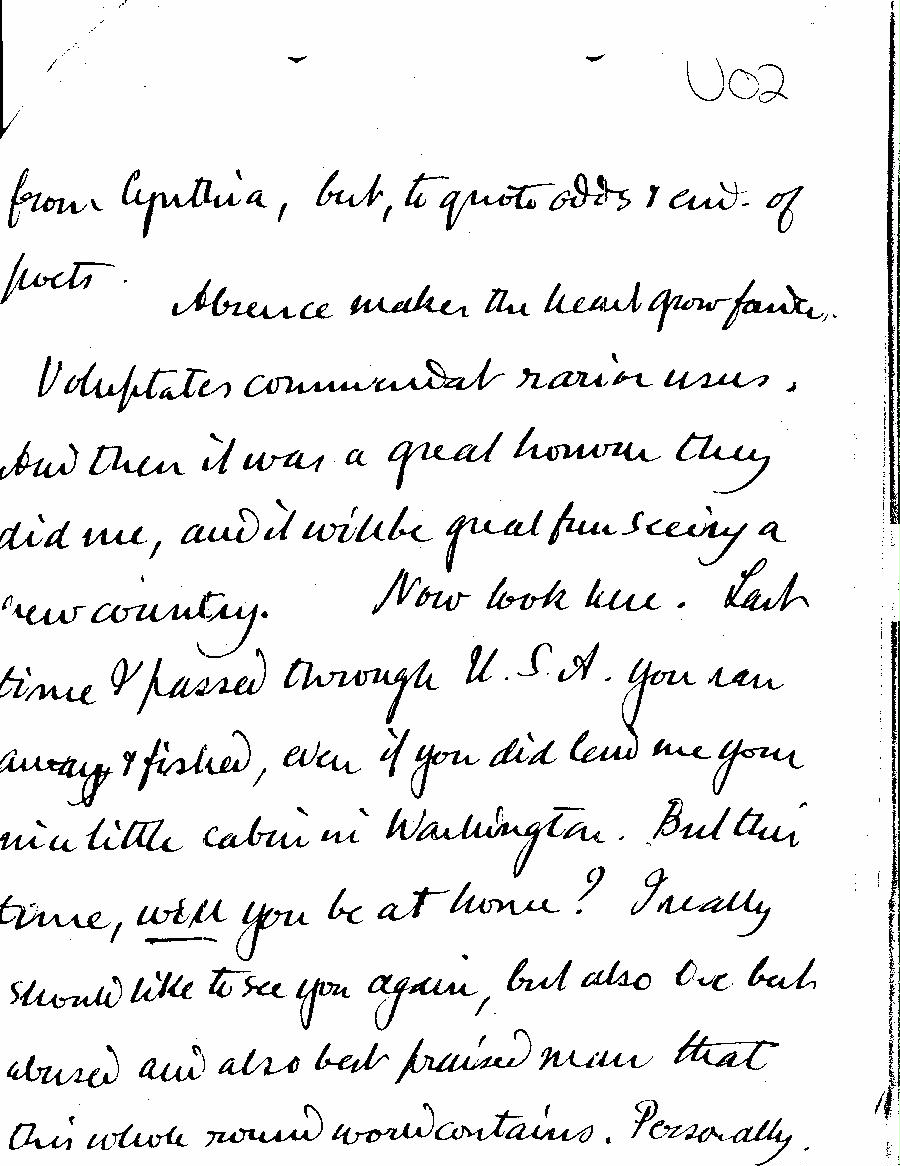 U02
from Cynthia, but, to quote odds & end. of
poets.
Absence makes the heart grow fonder.
Voluptates commendat rarior usus.
And then it was a great honour they
did me, and it will be great fun seeing a
new country. Now look here. Last
time I passed through U.S.A. you ran
away & fished, even if you did lend me your
nice little cabin in Washington. But this
time, will you be at home? I really
should like to see you again, but also the best
abused and also best praised man that
this whole round world contains. Personally.